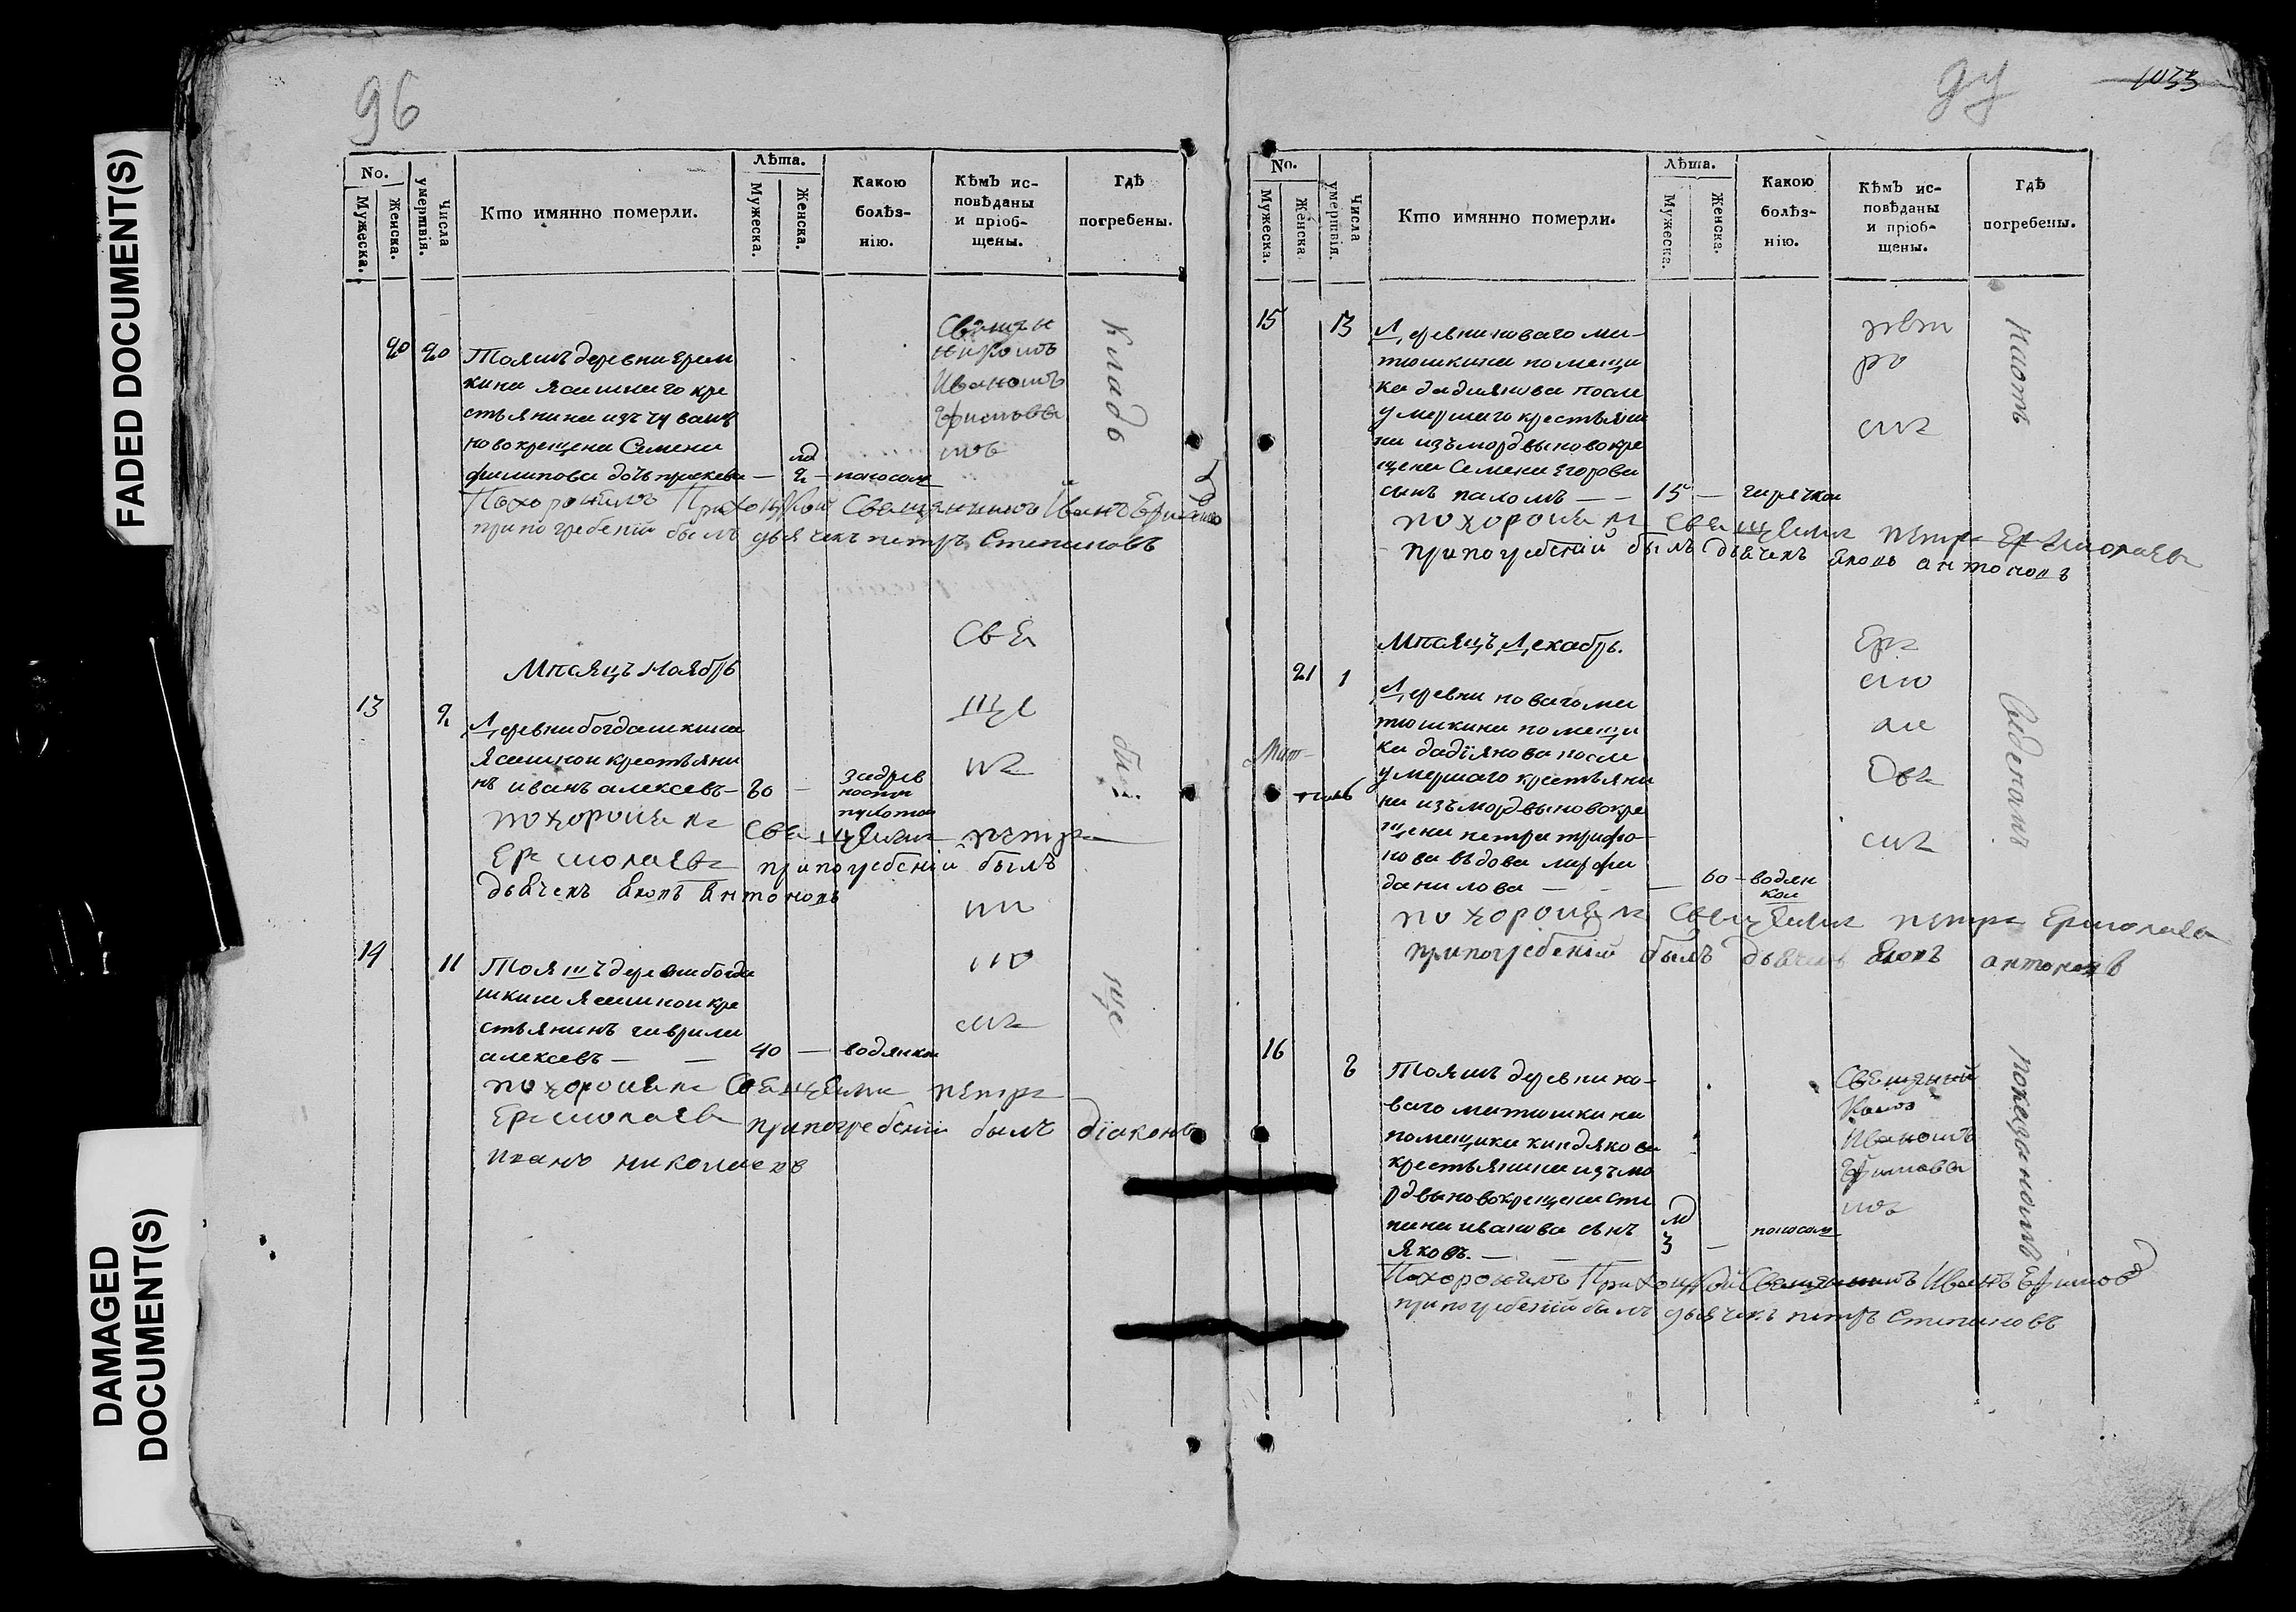 FADED DOCUMENT(S)
DAMAGED
DOCUMENT(S)
96
No.
Мужеска.
Женска.
Числа
умертвія.
Кто имянно померли.
Лѣта.
Мужеска.
Женска.
Какою
болѣз-
нію.
Кѣмъ ис-
повѣданы
и пріоб-
щены.
Гдѣ
погребены.
20 20
Тояжъ деревни Ерем
кина ясашнаго кре
стьянина изъ чуваш
новокрещена Семена
филипова дочь праскева — 2 — поносом
Похоронилъ Приходской Священникъ Иванъ Ефимов
при погребеніи былъ дьячекъ петръ Степановъ
Иваномъ
Кладь
бы
ще
Мпсяцъ Ноябрь
13 2
Деревни богдашкина
ясашнои крестьяни
нъ иванъ алексеевъ — 80 —
похоронелъ Свещеникъ петръ
Ермолаевъ при погребеніи былъ
дьячекъ Яковъ Антоновъ
Све
ще
14 11
Тояжъ деревни богда
шкина ясашнои кре
стьянинъ гаврила
алексеевъ — — 40 — водянкою
похоронелъ Свещеникъ петръ
Ермолаевъ при погребеніи былъ діаконъ
иванъ николаевъ
1033
No.
Мужеска.
Женска
Числа
умертвія.
Кто имянно померли.
Лѣта.
Мужеска.
Женска.
Какою
болѣз-
нію.
Кѣмъ ис-
повѣданы
и пріоб-
щены.
Гдѣ
погребены.
15 13
Деревни новаго ма-
тюшкина помещи
ка дадиянова после
умершаго крестьяни
на изъ мордвы новокре
щена Семена Егорова
сынъ пахомъ — — 15 — гарячкою
похоронелъ Свещеникъ петръ Ермолаевъ
при погребеніи былъ дьячекъ Яковъ антоновъ
Мпсяцъ Декабрь.
21 1
Деревни новаго ма
тюшкина помещи
ка дадіянова после
умершаго крестьяни
на изъ мордвы новокре
щена петра трифо-
нова вдова марфа
данилова — — — 60 — водян
кои
похоронелъ Свещеникъ петръ Ермолаевъ
при погребеніи былъ дьячекъ Яковъ антоновъ
16 6
Тояжъ деревни но-
ваго матюшкина
помещика киндякова
крестьянина изъ мо
рдвы новокрещена сте
пана иванова сынъ
Яковъ. — 3 — поносом
Иваномъ
Похоронилъ Приходской Священникъ Иванъ Ефимовъ
при погребеніи былъ дьячекъ петръ Степановъ